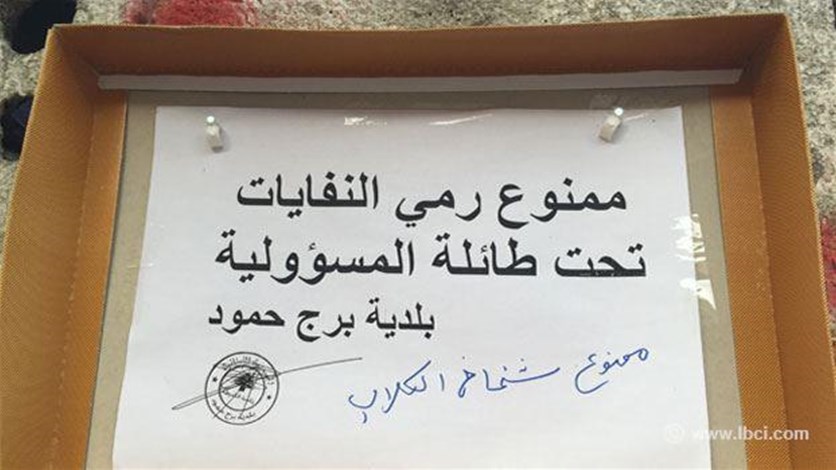 ممنوع رمي النفايات
تحت طائلة المسؤولية
بلدية برج حمود
ممنوع شخاخ الكلاب
بلدية برج حمود
© www.lbci.com